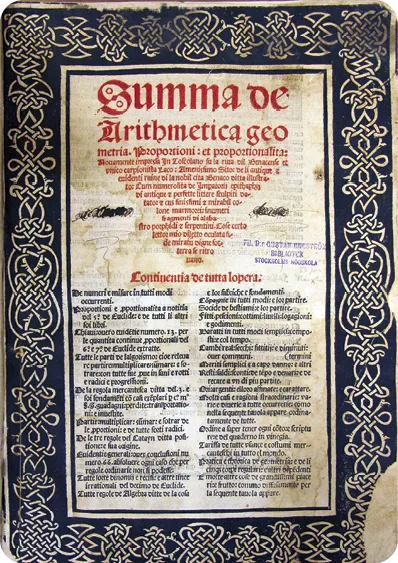 Summa de
Arithmetica geo
metria. Proportioni: et proportionalita:
Novamente impressa In Toscolano su la riva dil Benacense et
unico carpionista Laco: Amenissimo Sito: de li antique e
evidenti ruine di la nobil cita Benaco ditta illustra
to: Cum numerosita de Imperatorii epithaphii
di antique e perfette littere sculpiti do
tato: e cum finissimi e mirabil co
lone marmorei: inumeri
fragmenti di alaba
stro porphidi e serpentini. Cose certo
lettor mio diletto oculata fi
de miratu digne sot
terra se ritro
vano.
FIL. D:r GUSTAF ENESTRÖMS
BIBLIOTEK
STOCKHOLMS HÖGSKOLA
Continentia de tutta lopera.
De numeri e misure in tutti modi
occurrenti.
Proportioni e proportionalita a notitia
del 5° de Euclide e de tutti li altri
soi libri.
Chiavi overo evidentie numero .13. per
le quantita continue proportionali del
6° e 7° de Euclide extratte.
Tutte le parti de lalgorismo: cioe releva
re partir multiplicar sumar e so
trare con tutte sue pve in sani e rotti
e radici e progressioni.
De la regola mercantesca ditta del .3. e
soi fondamenti
guadagni perdite: transportatio
ni: e investite.
Partir multiplicar: sumar e sotrar de
le proportioni: e de tutte sorti radici.
De le tre regole del Catayn ditta posi
tione e sua origine.
Evidentie generali: over conclusioni nu
mero 66. absolvere ogni caso che per
regole ordinarie non si podesse.
Tutte sorte binomii e recisi e altre linee
irrationali del decimo de Euclide.
Tutte regole de Algebra ditte de la cosa
e lor fabriche e fondamenti.
Compagnie in tutti modi: e lor partire.
Socide de bestiami: e lor partire.
Fitti: pesioni: cottimi: livelli: logagioni:
e godimenti.
Baratti in tutti modi semplici: composti:
e col tempo.
Cambi reali: secchi: fittitii: e diminuti:
over communi.
Meriti semplici e a capo danno: e altri termini
Resti: saldi: sconti: de tempo e denari: e de
recare a un di piu partite.
Ori: argenti: e lloro affinare: e carattare.
Molti casi e ragioni straordinarie: va
rie e diverse a tutte occurentie: como
nella sequente tavola appare ordinata
mente de tutte.
Ordine a saper tener ogni conto e scripture
e del quaderno in vinegia.
Tariffa de tutte usance e costumi mer
canteschi in tutto el mondo.
Pratica e theorica de geometria: e de li
cinque corpi regulari: e altri dependenti
e molte altre cose de grandissimi piace
ri: e frutto: commo diffusamente per
la sequente tavola appare.